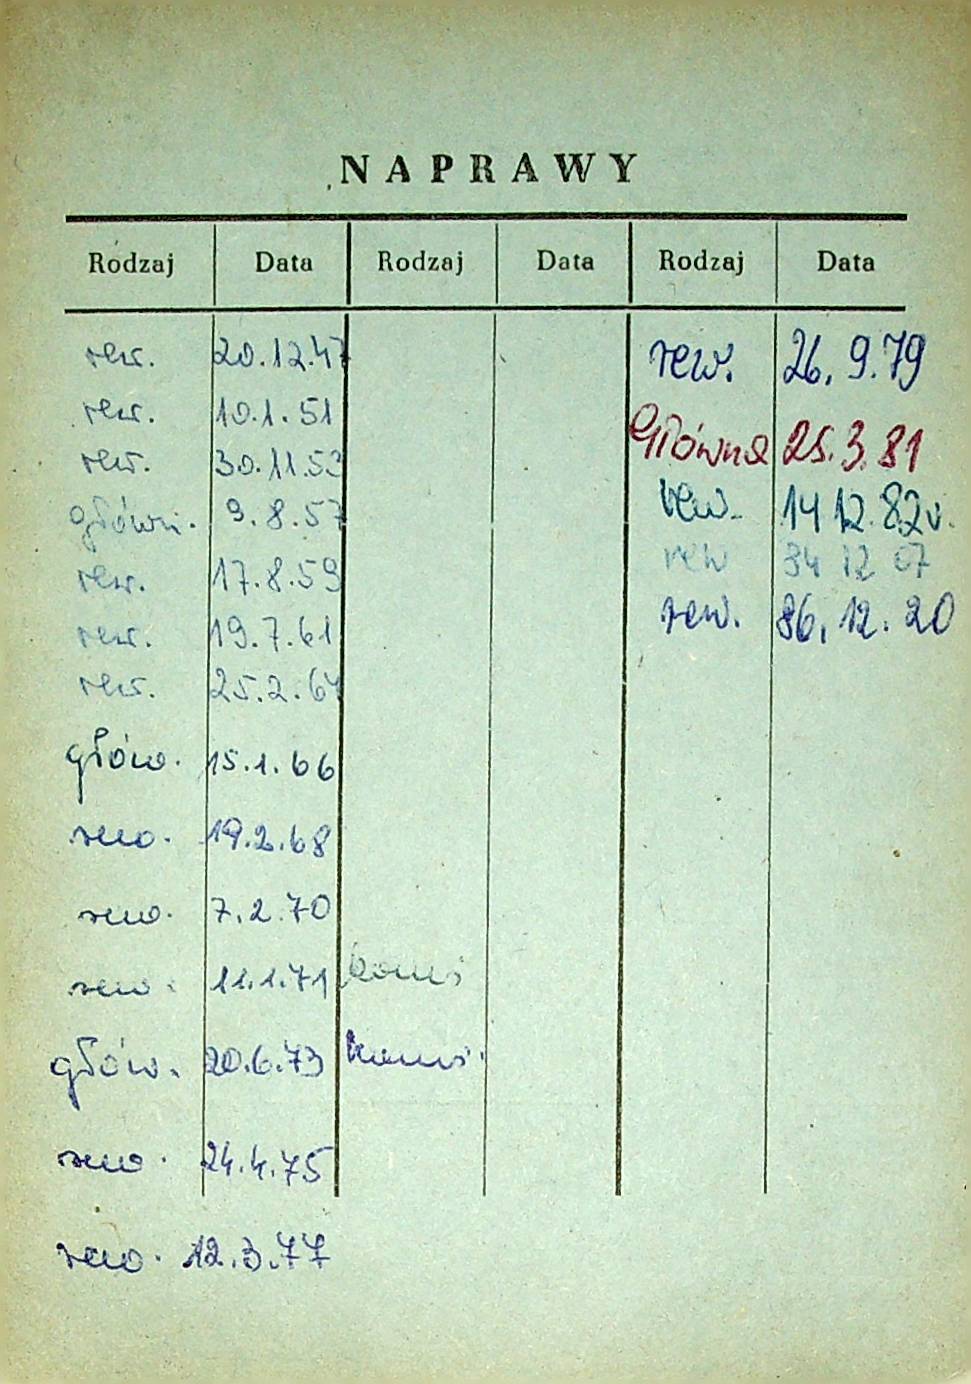 NAPRAWY
Rodzaj Data Rodzaj Data Rodzaj Data
rew. 20.12.47
rew. 10.1.51
rew. 30.11.53
główn. 9.8.57
rew. 17.8.59
rew. 19.7.61
rew. 25.2.64
głów. 15.1.66
rew. 19.2.68
rew. 7.2.70
rew. 11.1.71
głów. 20.6.73
rew. 24.4.75
rew. 12.3.77
rew. 26.9.79
Główna 25.3.81
rew. 14 12.82
rew 12 07
rew. 86.12.20